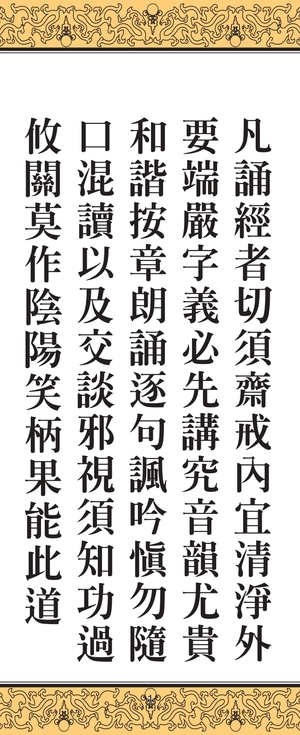 凡誦經者切須齋戒內宜清淨外
要端嚴字義必先講究音韻尤貴
和諧按章朗誦逐句諷吟愼勿隨
口混讀以及交談邪視須知功過
攸關莫作陰陽笑柄果能此道